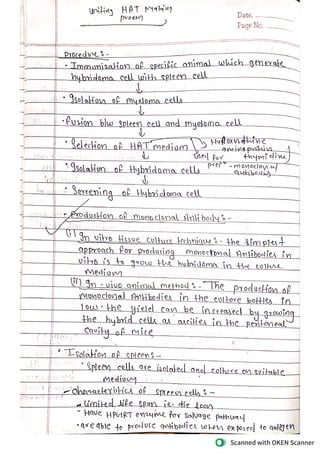 Date.
Page No.
Procedure:-
• Immunisation of specific animal which generate
hybridoma cell with spleen cell
↓
• Isolation of myeloma cells
↓
• fusion b/w spleen cell and myeloma cell
↓
• Selection of HAT medium
used for
thymidine
↓
• Isolation of Hybridoma cells
- monoclonal
antibodies
↓
• Screening of Hybridoma cell
- Production of monoclonal Antibody:-
(i) In vitro tissue culture technique:- the simplest
approach for producing monoclonal Antibodies in
vitro is to grow the hybridoma in the culture
medium
(ii) In-vivo animal method:- The production of
monoclonal Antibodies in the culture bottles in
low. the yield can be increased by growing
the hybrid cells as ascities in the peritoneal
cavity of mice
• Isolation of spleen:-
• Spleen cells are isolated and culture on suitable
medium
- Characteristics of spleen cells:-
- Limited life span i.e. die soon
• Have HPGRT enzyme for salvage pathway
• are able to produce antibodies when exposed to antigen
Scanned with OKEN Scanner